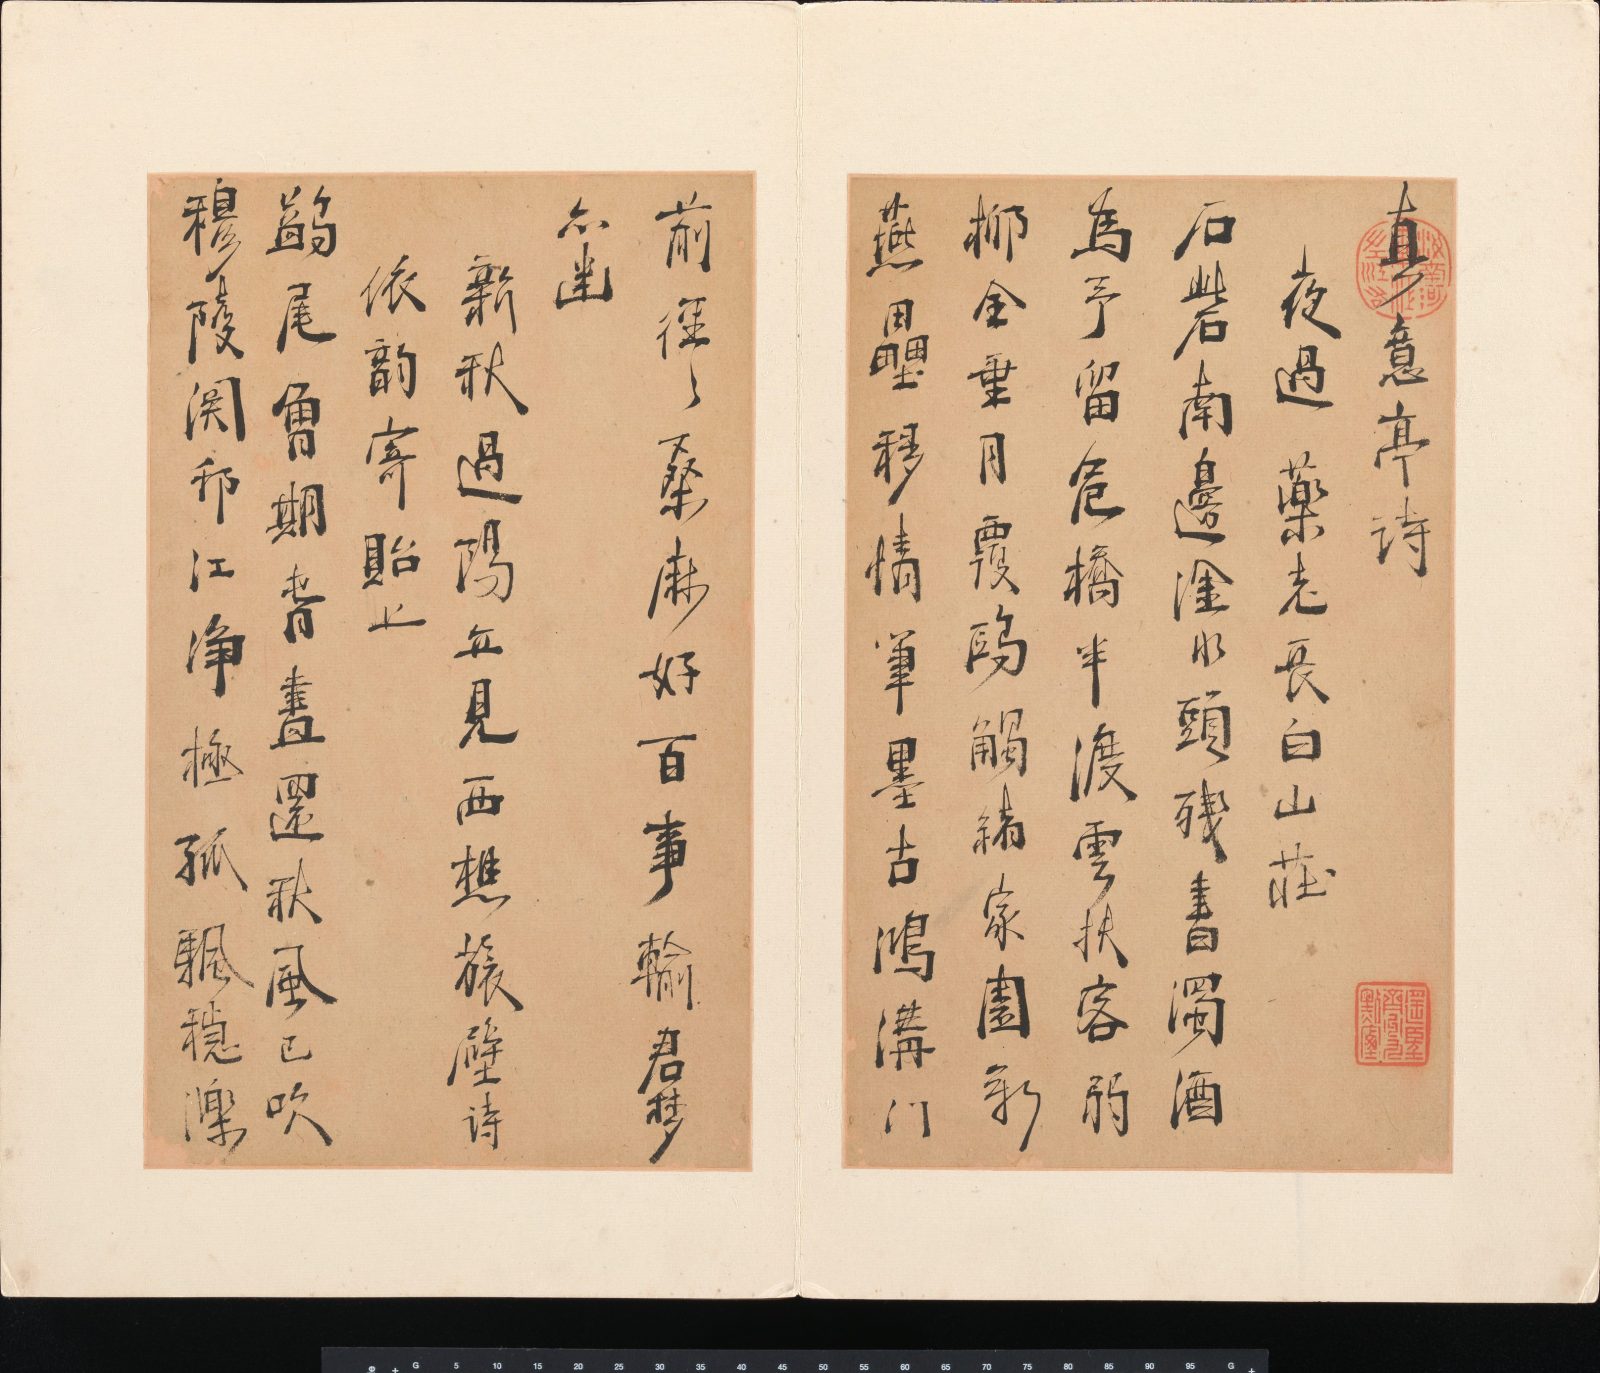 真意亭诗
夜過藥老長白山莊
石砦南邊淦水頭殘書濁酒
為予留危橋半渡雲扶客弱
柳全垂月覆鷗觸緒家園新
燕壘移情筆墨古鴻溝门
前徑々桑麻好百事輸君夢
亦
新秋過陽丘見西樵旅壁诗
依韵寄貽上
鷁尾曾期春晝還秋風已吹
穆陵関邗江净極孤颿穩濼